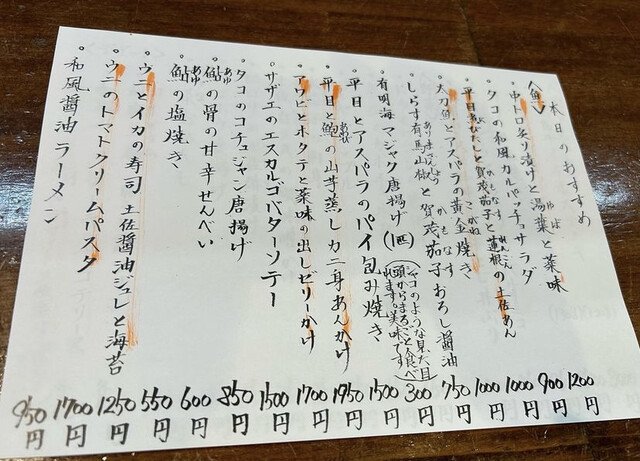 本日のおすすめ
〈魚〉
中トロ炙り漬けと湯葉と薬味 1200円
タコの和風カルパッチョサラダ 900円
平目あぶたしと賀茂茄子と蓮根の土佐あん 1000円
太刀魚とアスパラの黄金焼き 1000円
しらす有馬山椒と賀茂茄子おろし醤油 750円
有明海マジャク唐揚げ(1匹) 300円
(シャコのような見た目 頭からまるごと食べれます。美味です)
平目とアスパラのパイ包み焼き 1500円
平目と鮑の山芋蒸しカニ身あんかけ 1950円
アワビとホタテと薬味の出しゼリーかけ 1700円
サザエのエスカルゴバターソテー 1500円
タコのコチュジャン唐揚げ 850円
鮎の骨の甘辛せんべい 600円
鮎の塩焼き 550円
ウニとイカの寿司 土佐醤油ジュレと海苔 1250円
ウニのトマトクリームパスタ 1700円
和風醤油ラーメン 950円